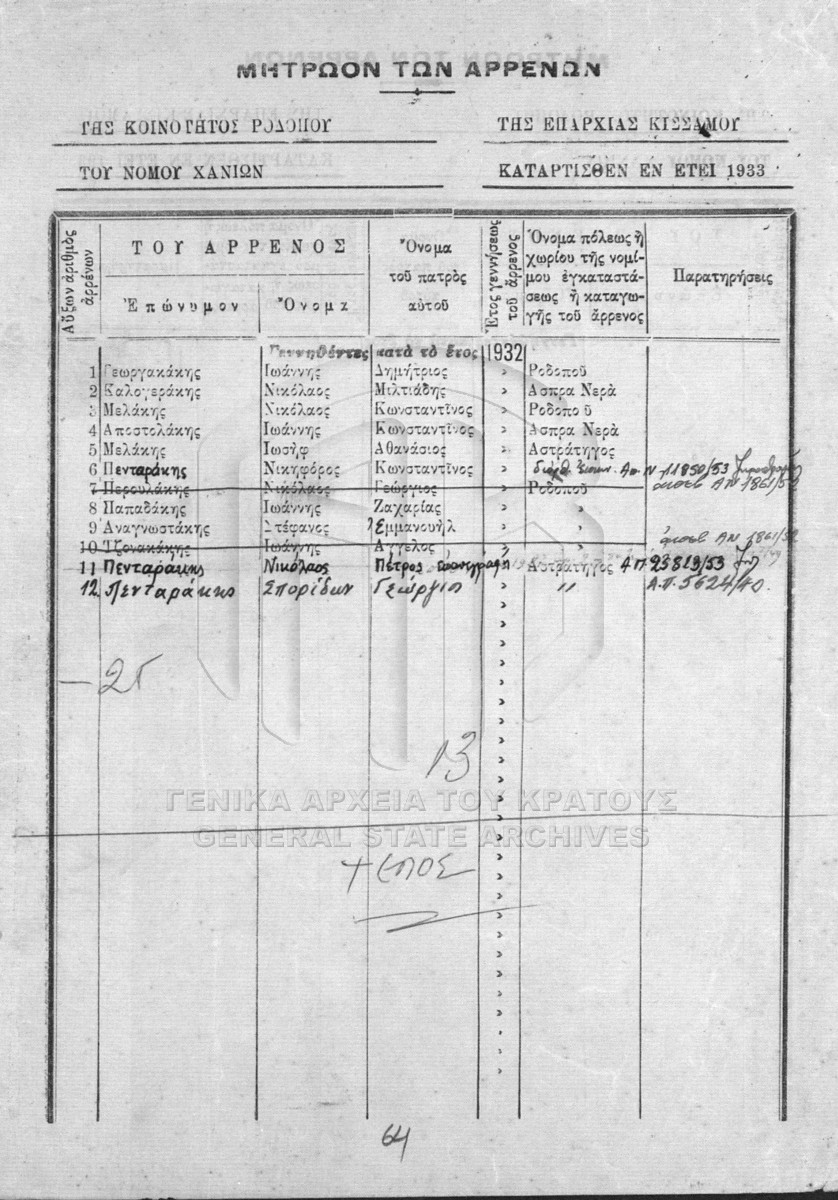 ΜΗΤΡΩΟΝ ΤΩΝ ΑΡΡΕΝΩΝ
ΤΗΣ ΚΟΙΝΟΤΗΤΟΣ ΡΟΔΟΠΟΥ
ΤΗΣ ΕΠΑΡΧΙΑΣ ΚΙΣΣΑΜΟΥ
ΤΟΥ ΝΟΜΟΥ ΧΑΝΙΩΝ
ΚΑΤΑΡΤΙΣΘΕΝ ΕΝ ΕΤΕΙ 1933
Αὔξων ἀριθμὸς ἀρρένων
ΤΟΥ ΑΡΡΕΝΟΣ
Ἐπώνυμον
Ὄνομα
Ὄνομα
τοῦ πατρὸς
αὐτοῦ
Ἔτος γεννήσεως
τοῦ ἄρρενος
Ὄνομα πόλεως ἢ
χωρίου τῆς νομί-
μου ἐγκαταστά-
σεως ἢ καταγω-
γῆς τοῦ ἄρρενος
Παρατηρήσεις
Γεννηθέντες κατὰ τὸ ἔτος 1932
1 Γεωργακάκης Ἰωάννης Δημήτριος » Ροδοποῦ
2 Καλογεράκης Νικόλαος Μιλτιάδης » Ασπρα Νερὰ
3 Μελάκης Νικόλαος Κωνσταντῖνος » Ροδοποῦ
4 Αποστολάκης Ἰωάννης Κωνσταντῖνος » Ασπρα Νερὰ
5 Μελάκης Ἰωσὴφ Αθανάσιος » Αστράτηγος
6 Πενταράκης Νικηφόρος Κωνσταντῖνος » Απ. Ν 11850/53
7 Περουλάκης Νικόλαος Γεώργιος » Ροδοποῦ ΑΝ 1861/52
8 Παπαδάκης Ἰωάννης Ζαχαρίας » »
9 Ἀναγνωστάκης Στέφανος Ἐμμανουὴλ » »
10 Τζονακάκης Ἰωάννης Αγγελος » » ΑΝ 1861/52
11 Πενταρακης Νικόλαος Πέτρος » Αστράτηγος ΑΠ 25819/53
12 Πενταράκης Σπορίδων Γεώργιο » " Α.Π. 5624/40
13
ΓΕΝΙΚΑ ΑΡΧΕΙΑ ΤΟΥ ΚΡΑΤΟΥΣ
GENERAL STATE ARCHIVES
64